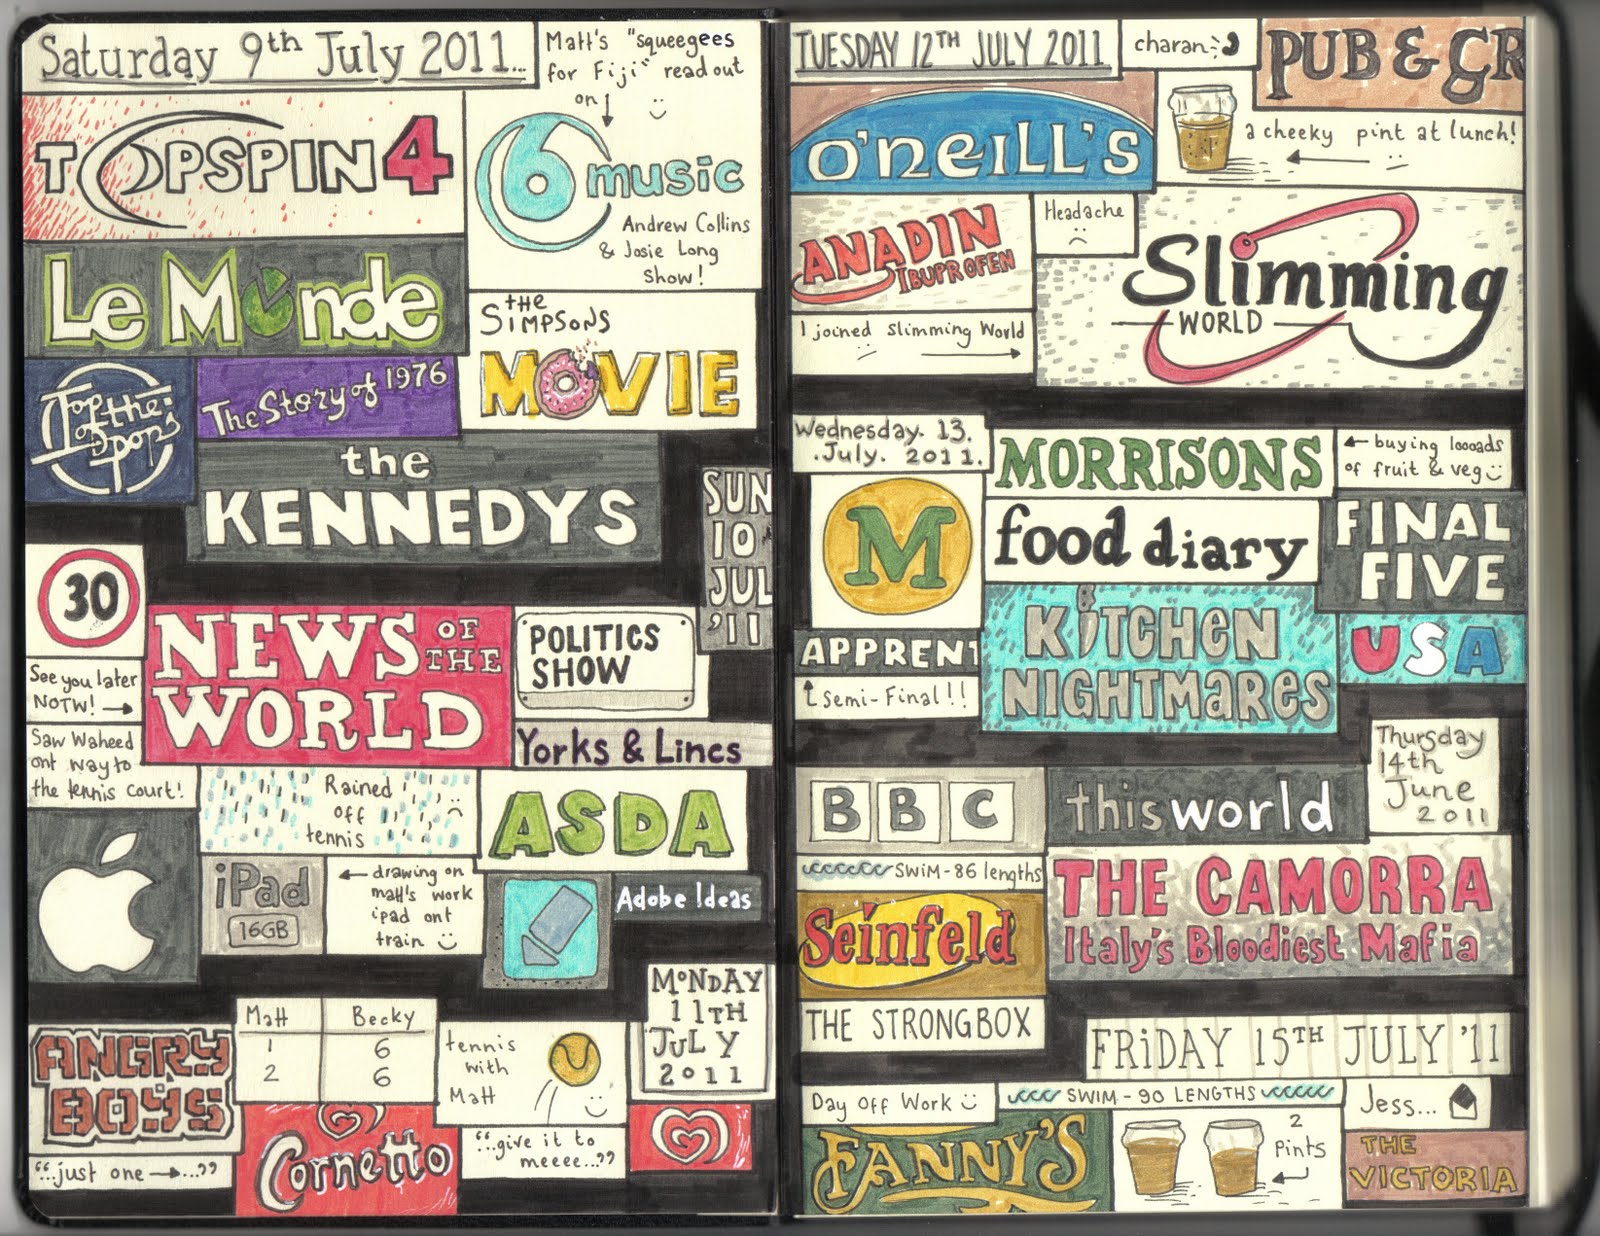 Saturday 9th July 2011...
Matt's "squeegees
for Fiji" read out
on
TOPSPIN 4
6 music
Andrew Collins
& Josie Long
Show!
Le Monde
the
SIMPSONS
MOVIE
Top
of the
pops
The Story of 1976
the
KENNEDYS
SUN
10
JUL
'11
30
See you later
NOTW!
NEWS OF
THE
WORLD
POLITICS
SHOW
Yorks & Lincs
Saw Waheed
ont way to
the tennis court!
Rained
off
tennis
ASDA
iPad
16GB
drawing on
matt's work
ipad ont
train
Adobe Ideas
MONDAY
11TH
JULY
2011
ANGRY
BOYS
"..just one ...”
Matt Becky
1 6
2 6
tennis
with
Matt
Cornetto
"..give it to
meeee..."
TUESDAY 12TH JULY 2011
charan
PUB & GR
O'NEILL'S
a cheeky pint at lunch!
ANADIN
IBUPROFEN
Headache
I joined Slimming World
Slimming
WORLD
Wednesday. 13.
.July. 2011.
MORRISONS
buying loooads
of fruit & veg
M
food diary
FINAL
FIVE
APPRENT
Semi-Final!!
KITCHEN
NIGHTMARES
USA
Thursday
14th
June
2011
BBC
this world
SWIM-86 lengths
THE CAMORRA
Italy's Bloodiest Mafia
Seinfeld
THE STRONGBOX
FRiDAY 15TH JULY '11
Day Off Work
SWIM - 90 LENGTHS
Jess...
FANNY'S
2
pints
THE
VICTORIA